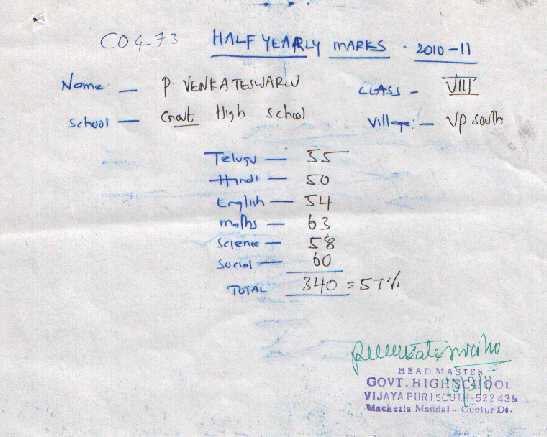 CO4-73 HALF YEARLY MARKS - 2010-11
Name: - P VENKATESWARLU CLASS - VIII
School - Govt. High School Village: - VP South
Telugu - 55
Hindi - 50
English - 54
maths - 63
Science - 58
Social - 60
TOTAL 340 = 57%
HEAD MASTER
GOVT. HIGH SCHOOL
VIJAYAPURI SOUTH-522 439
Macherla Mandal - Guntur Dt.